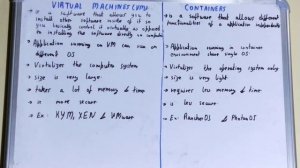 VIRTUAL MACHINES (VM)
is a software that allows you to
install other software inside of it so
you basically control it virtually as opposed
to installing the software directly on computer
Application running on VM can run on
different OS.
Virtualizes the computer system
size is very large
takes a lot of memory & time
is more secure
Ex: KVM, XEN & VMware
CONTAINERS
is a software that allows different
functionalities of a application independently
Application running in container
environment share single OS.
Virtualizes the operating system only
size is very light
requires less memory & time
is less secure
Ex: RancherOS & PhotonOS